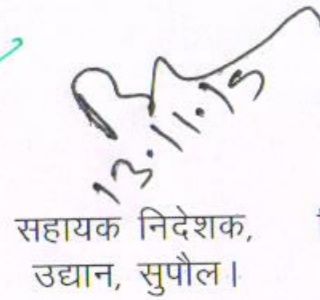 13.11.15
सहायक निदेशक,
उद्यान, सुपौल।